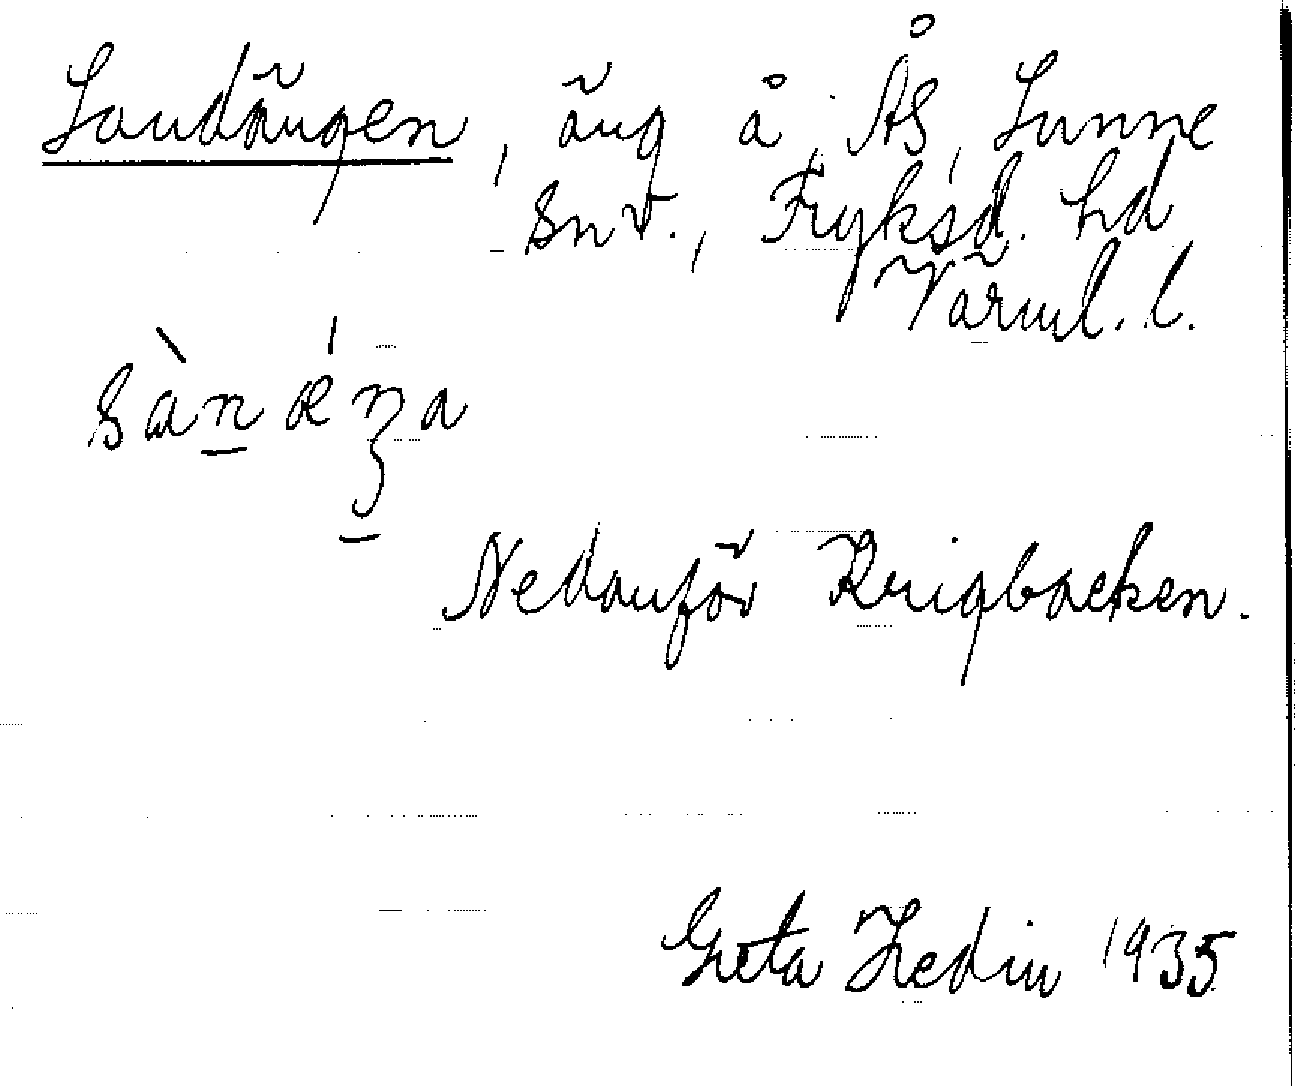 Sandängen, äng å Ås, Sunne
snv., Fryksd. hd
Värml. l.
sàn ǽŋa
Nedanför Krigbacken.
Greta Hedin 1935